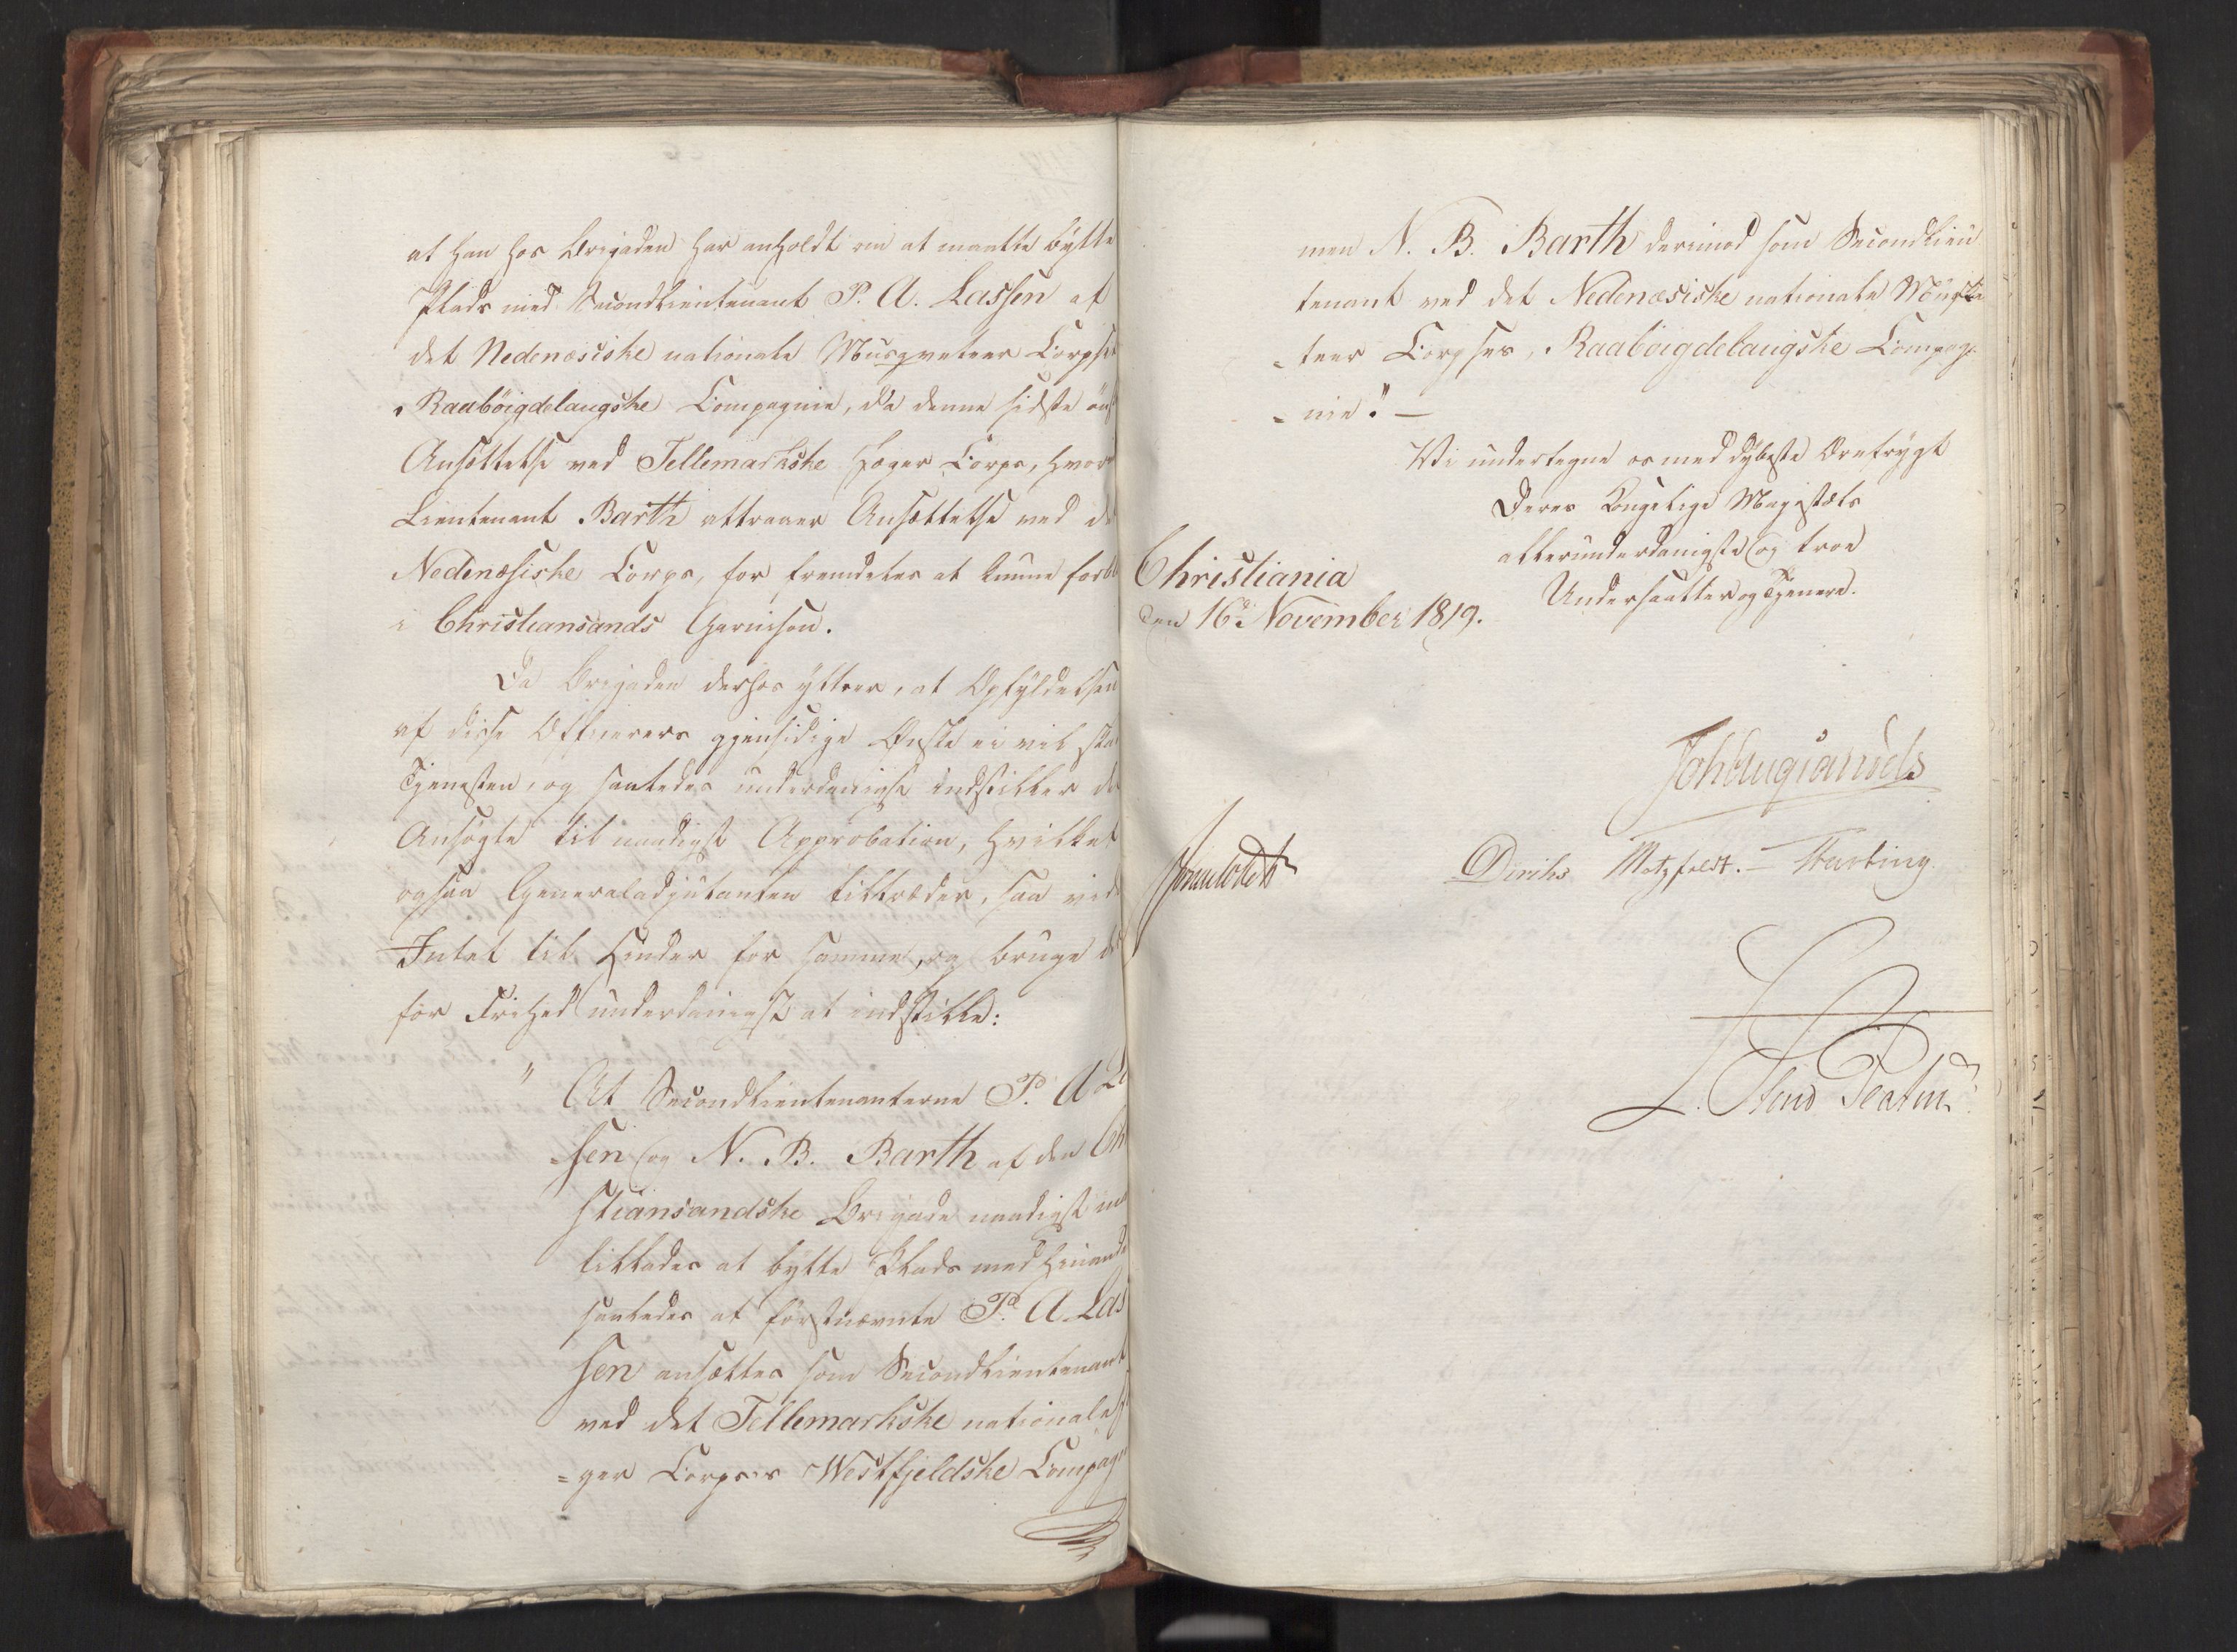 at han hos Brigaden har anholdt om at maatte bytte
Plads med Secondlieutenant P. A. Lassen af
det Nedenæsiske nationale Musqveteer Corpses
Raabøigdelaugske Compagnie, da denne sidste øns
Ansættelse ved Tellemarkske Jæger Corps, hvor
Lieutenant Barth attraaer Ansættelse ved de
Nedenæsiske Corps, for fremdeles at kunne forbl
i Christiansands Garnison.
Da Brigaden derhos yttrer, at Opfyldelsen
af disse Officerers gjensidige Ønske ei vil ska
Tjenesten, og saaledes underdanigst indstiller de
Ansøgte til naadigst Approbation, hvilket
ogsaa Generaladjutanten tiltræder, saa vide
Intet til Hinder for samme, og bruge der
for Frihed underdanigst at indstille:
" At Secondlieutenanterne P. A. La
-sen og N. B. Barth af den Chr
stiansandske Brigade naadigst
tillades at bytte Plads med hinand
saaledes at førstnævnte P. A. Las
sen ansættes som Secondlieutenant
ved det Tellemarkske nationale
=ger Corpses Westfjeldske Compag
men N. B. Barth derimod som Secondlieu
tenant ved det Nedenæsiske nationale Musqve
=teer Corpses, Raabøigdelaugske Compag-
=nie". —
Vi undertegne os med dybeste Ærefrygt
Deres Kongelige Majestæts
allerunderdanigste og troe
Undersaatter og Tjenere.
Christiania
den 16de November 1819.
Diriks Motzfeldt. Hasting